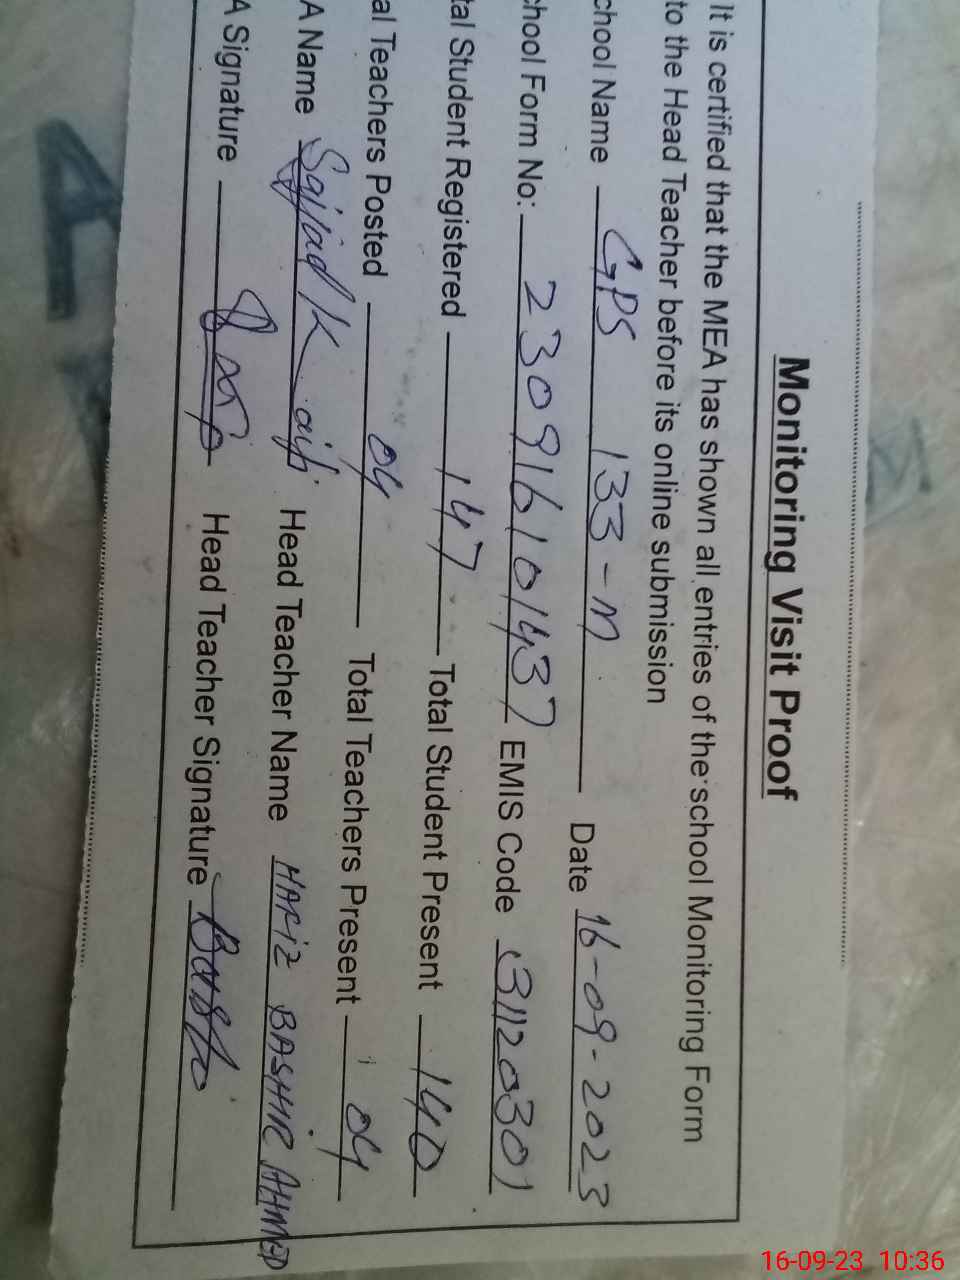 Monitoring Visit Proof
It is certified that the MEA has shown all entries of the school Monitoring Form
to the Head Teacher before its online submission
chool Name GPS 133-M Date 16-09-2023
chool Form No: 230916101437 EMIS Code 31120301
tal Student Registered 147 Total Student Present 140
al Teachers Posted 04 Total Teachers Present 04
A Name Sajjad Head Teacher Name HAFIZ BASHIR AHMED
A Signature Head Teacher Signature
16-09-23 10:36